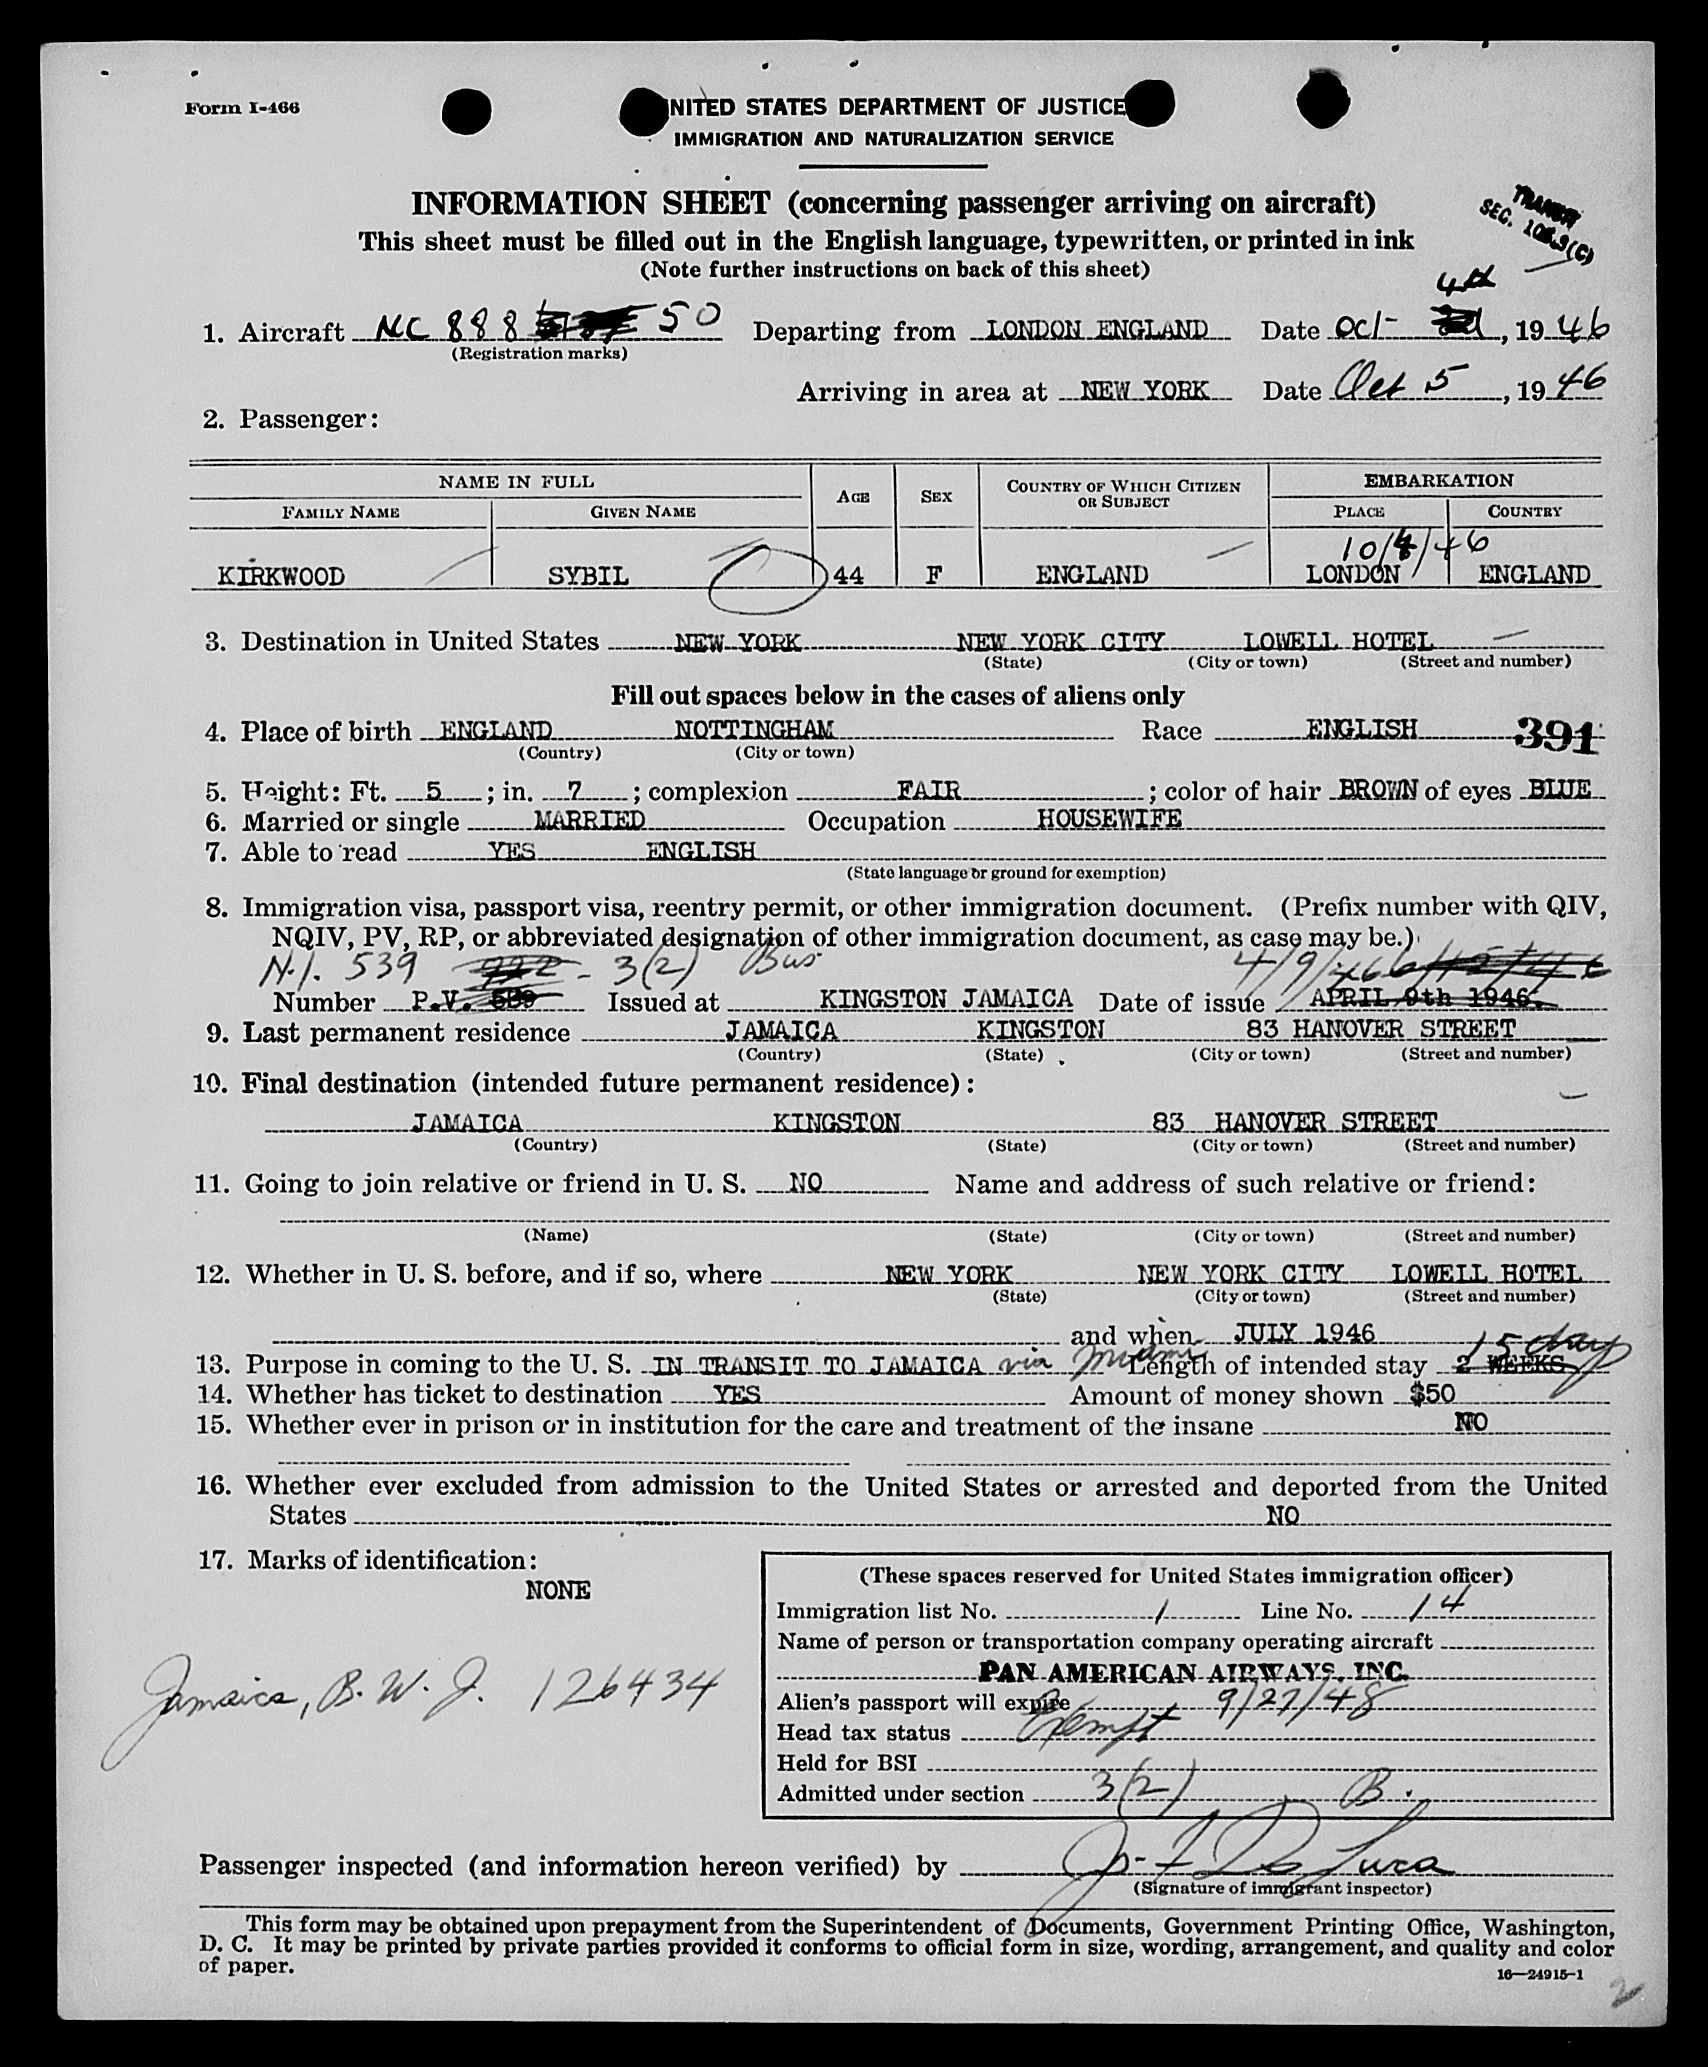 Form I-466
UNITED STATES DEPARTMENT OF JUSTICE
IMMIGRATION AND NATURALIZATION SERVICE
INFORMATION SHEET (concerning passenger arriving on aircraft)
This sheet must be filled out in the English language, typewritten, or printed in ink
(Note further instructions on back of this sheet)
TRANSIT
SEC. 105.3(C)
4th
1. Aircraft NC 888 50 Departing from LONDON ENGLAND Date Oct- , 1946
(Registration marks)
Arriving in area at NEW YORK Date Oct 5, 1946
2. Passenger:
NAME IN FULL AGE SEX COUNTRY OF WHICH CITIZEN OR SUBJECT EMBARKATION
FAMILY NAME GIVEN NAME PLACE COUNTRY
10/4/46
KIRKWOOD SYBIL 44 F ENGLAND LONDON ENGLAND
3. Destination in United States NEW YORK NEW YORK CITY LOWELL HOTEL
(State) (City or town) (Street and number)
Fill out spaces below in the cases of aliens only
4. Place of birth ENGLAND NOTTINGHAM Race ENGLISH 391
(Country) (City or town)
5. Height: Ft. 5 ; in. 7 ; complexion FAIR ; color of hair BROWN of eyes BLUE
6. Married or single MARRIED Occupation HOUSEWIFE
7. Able to read YES ENGLISH
(State language or ground for exemption)
8. Immigration visa, passport visa, reentry permit, or other immigration document. (Prefix number with QIV,
NQIV, PV, RP, or abbreviated designation of other immigration document, as case may be.)
N.I. 539 - 3(2) Bus 4/9/46
Number P.V. 539 Issued at KINGSTON JAMAICA Date of issue APRIL 9th 1946.
9. Last permanent residence JAMAICA KINGSTON 83 HANOVER STREET
(Country) (State) (City or town) (Street and number)
10. Final destination (intended future permanent residence):
JAMAICA KINGSTON 83 HANOVER STREET
(Country) (State) (City or town) (Street and number)
11. Going to join relative or friend in U. S. NO Name and address of such relative or friend:
(Name) (State) (City or town) (Street and number)
12. Whether in U. S. before, and if so, where NEW YORK NEW YORK CITY LOWELL HOTEL
(State) (City or town) (Street and number)
and when JULY 1946
15 days
13. Purpose in coming to the U. S. IN TRANSIT TO JAMAICA via Miami Length of intended stay 2 WEEKS
14. Whether has ticket to destination YES Amount of money shown $50
15. Whether ever in prison or in institution for the care and treatment of the insane NO
16. Whether ever excluded from admission to the United States or arrested and deported from the United
States NO
17. Marks of identification:
NONE
Jamaica, B. W. I. 126434
(These spaces reserved for United States immigration officer)
Immigration list No. 1 Line No. 14
Name of person or transportation company operating aircraft
PAN AMERICAN AIRWAYS, INC.
Alien's passport will expire 9/27/48
Head tax status Exempt
Held for BSI
Admitted under section 3(2) B.
Passenger inspected (and information hereon verified) by J. F. De Luca
(Signature of immigrant inspector)
This form may be obtained upon prepayment from the Superintendent of Documents, Government Printing Office, Washington,
D. C. It may be printed by private parties provided it conforms to official form in size, wording, arrangement, and quality and color
of paper.
16—24915-1
2